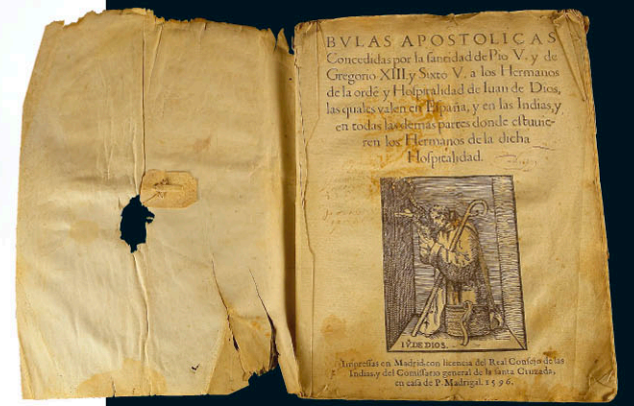 BVLAS APOSTOLICAS
Concedidas por la santidad de Pio V. y de
Gregorio XIII. y Sixto V. a los Hermanos
de la ordē y Hospitalidad de Iuan de Dios,
las quales valen en España, y en las Indias, y
en todas las demas partes donde estuuie-
ren los Hermanos de la dicha
Hospitalidad.
IV. DE DIOS.
Impressas en Madrid, con licencia del Real Consejo de las
Indias, y del Comissario general de la santa Cruzada,
en casa de P. Madrigal. 1596.